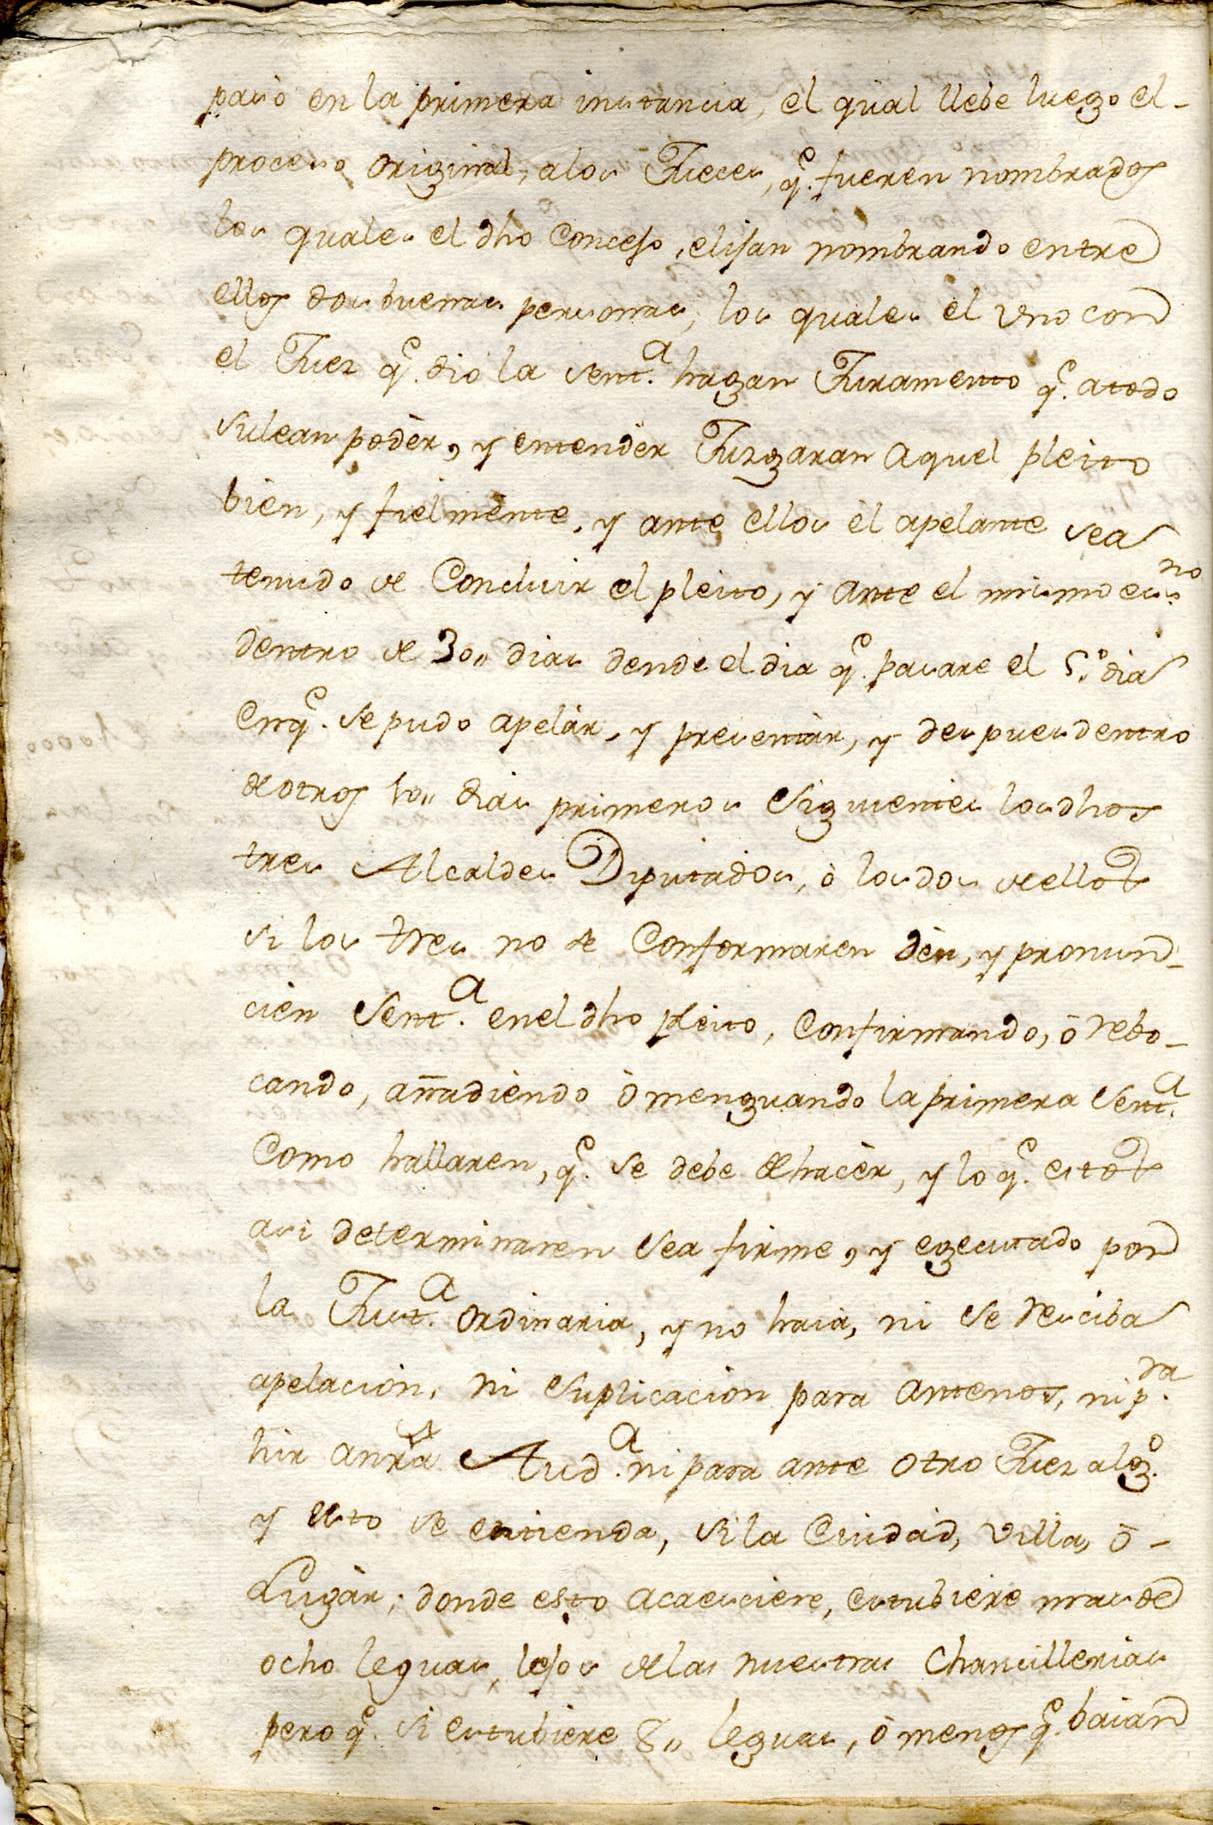 pasò en la primera instancia, el qual llebe luego el-
proceso original, a los Jueces, q.e fueren nombrados
los quales el dho Concejo, elijan nombrando entre
ellos dos buenas personas, los quales el uno con
el Juez q.e dio la sent.a hagan Juramento q.e a todo
su lean podèr, y entendèr Juzgaran aquel pleito
bien, y fielmènte, y ante ellos èl apelante sea
tenudo de Concluir el pleito, y ante el mismo es.no
dentro de 30,, dias dende el dia q.e pasare el 5.o dia
en q.e se pudo apelàr, y presentàr, y despues dentro
de otros 10,, dias primeros siguientes los dhos
tres Alcaldes Diputados, ò los dos de ellos
si los tres no se Conformaren dèn, y pronun-
cien Sent.a en el dho pleito, Confirmando, ò rebo-
cando, añadiendo ò menguando la primera Sent.a
Como hallaren, q.e se debe de hacèr, y lo q.e estos
asi determinaren sea firme, y egecutado por
la Just.a ordinaria, y no haia, ni se resciba
apelacion, ni Suplicacion para antenos, ni p.ra
hir anrã Aud.a ni para ante otro Juez alg.o
y esto se entienda, si la Ciudad, Villa, ò -
Lugàr; donde esto acaesciere, estubiere mas de
ocho leguas, lejos de las nuestras Chancillerias
pero q.e si estubiere 8,, leguas, ò menos q.e baian